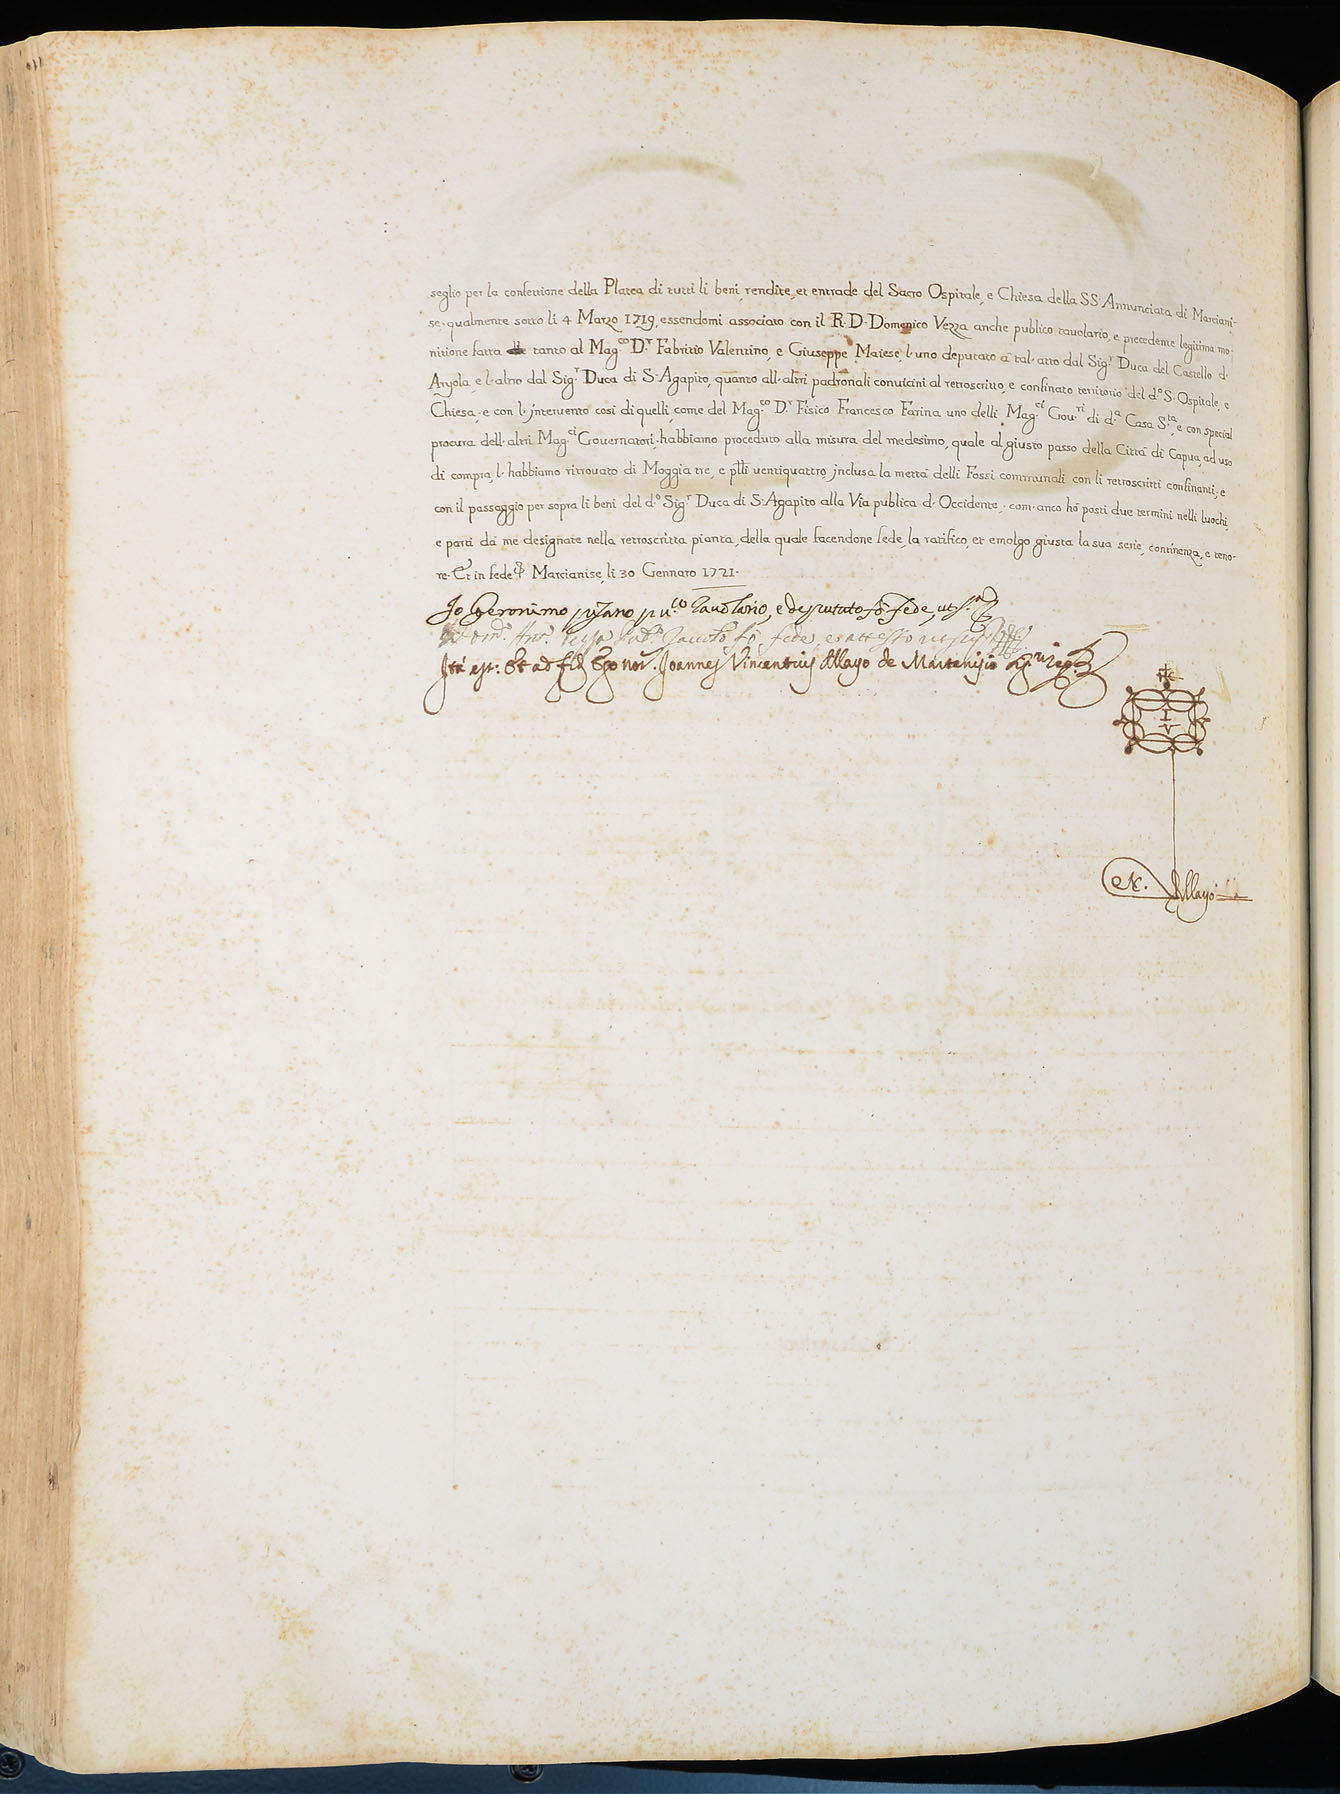 seglio per la confettione della Platea di tutti li beni, rendite, et entrade del Sacro Ospitale, e Chiesa della SS. Annunciata di Marciani-
se, qualmente sotto li 4 Marzo 1719, essendomi associato con il R. D. Domenico Vezza anche publico tavolario, e precedente legitima mo-
nitione fatta tanto al Mag.co D.r Fabritio Valentino, e Giuseppe Maiese, l'uno deputato a tal'atto dal Sig.r Duca del Castello d'
Aryola, e l'altro dal Sig.r Duca di S. Agapito, quanto all'altri padronali convicini al retroscritto, e confinato territorio del d.o S. Ospitale, e
Chiesa, e con l'intervento così di quelli, come del Mag.co D.r Fisico Francesco Farina uno delli Mag.ci Gov.ri di d.a Casa S.ta, e con special
procura dell'altri Mag.ci Governatori, habbiamo proceduto alla misura del medesimo, quale al giusto passo della Città di Capua, ad uso
di compra, l'habbiamo ritrovato di Moggia tre, e p̃ssi ventiquattro, inclusa la metta delli Fossi communali con li retroscritti confinanti, e
con il passaggio per sopra li beni del d.o Sig.r Duca di S. Agapito alla Via publica d'Occidente, com'anco hò posti due termini nelli luochi,
e parti da me designate nella retroscritta pianta, della quale facendone fede, la ratifico, et emolgo giusta la sua serie, continenza, e teno-
re. Et in fede Marcianise, li 30 Gennaro 1721.
Io Geronimo pu.co Tavolario, e deputato fò fede, ut s.a
fò fede
Ità est: Et ad fid. Ego not. Joannes Vincentius Allayo de Martenisio
I V
Ex. Allayo